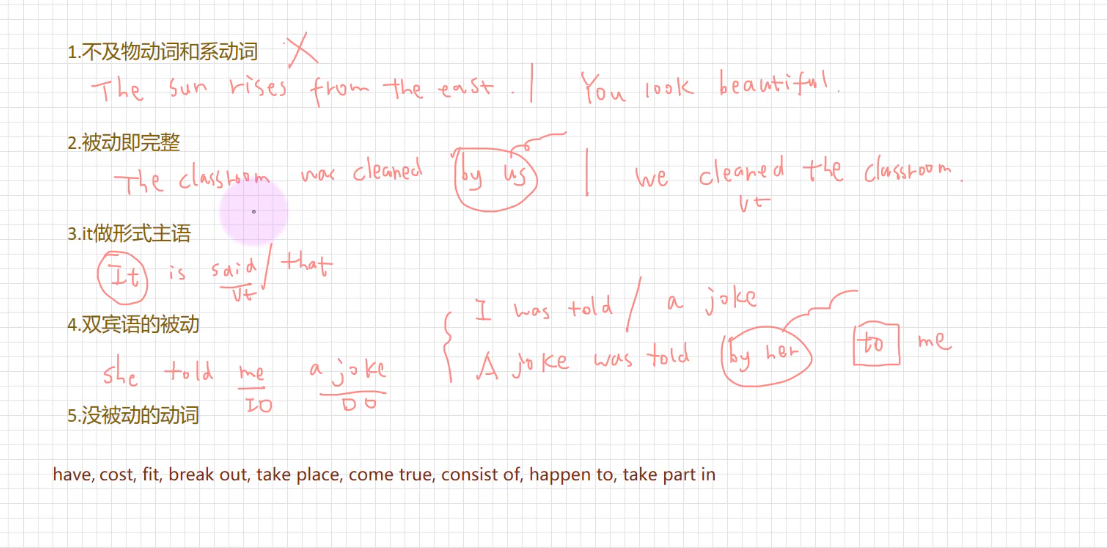 1.不及物动词和系动词 X
The sun rises from the east. | You look beautiful.
2.被动即完整
The classroom was cleaned by us | we cleaned the classroom.
vt
3.it做形式主语
It is said / that
vt
I was told / a joke
4.双宾语的被动
A joke was told by her to me
she told me a joke
IO DO
5.没被动的动词
have, cost, fit, break out, take place, come true, consist of, happen to, take part in